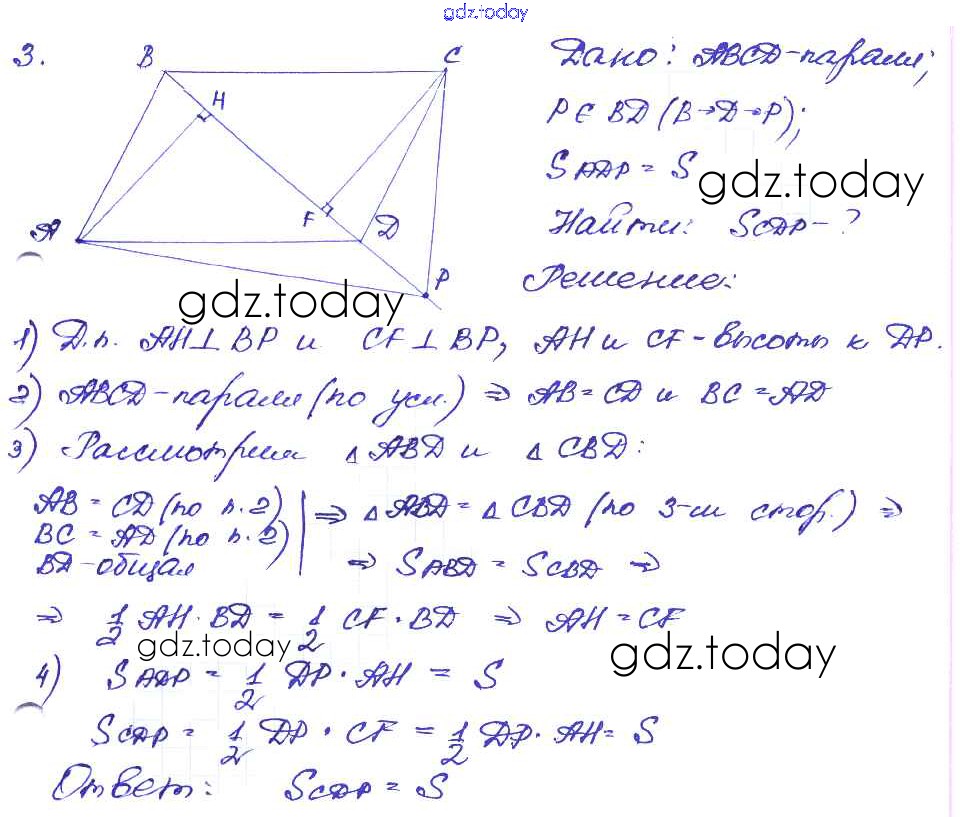 gdz.today
3.
B
C
H
F
D
A
P
Дано: ABCD-паралл;
P ∈ BD (B→D→P);
S ADP = S
gdz.today
Найти: S CDP - ?
Решение:
gdz.today
1) Д.п. AH⊥BP и CF⊥BP, AH и CF-высоты к DP.
2) ABCD-паралл (по усл.) ⇒ AB=CD и BC=AD
3) Рассмотрим △ABD и △CBD:
AB = CD (по п.2)
BC = AD (по п.2)
BD-общая
⇒ △ABD = △CBD (по 3-м стор.) ⇒
⇒ S ABD = S CBD ⇒
⇒ 1/2 AH·BD = 1/2 CF·BD ⇒ AH = CF
gdz.today
gdz.today
4) S ADP = 1/2 DP·AH = S
S CDP = 1/2 DP·CF = 1/2 DP·AH = S
Ответ: S CDP = S